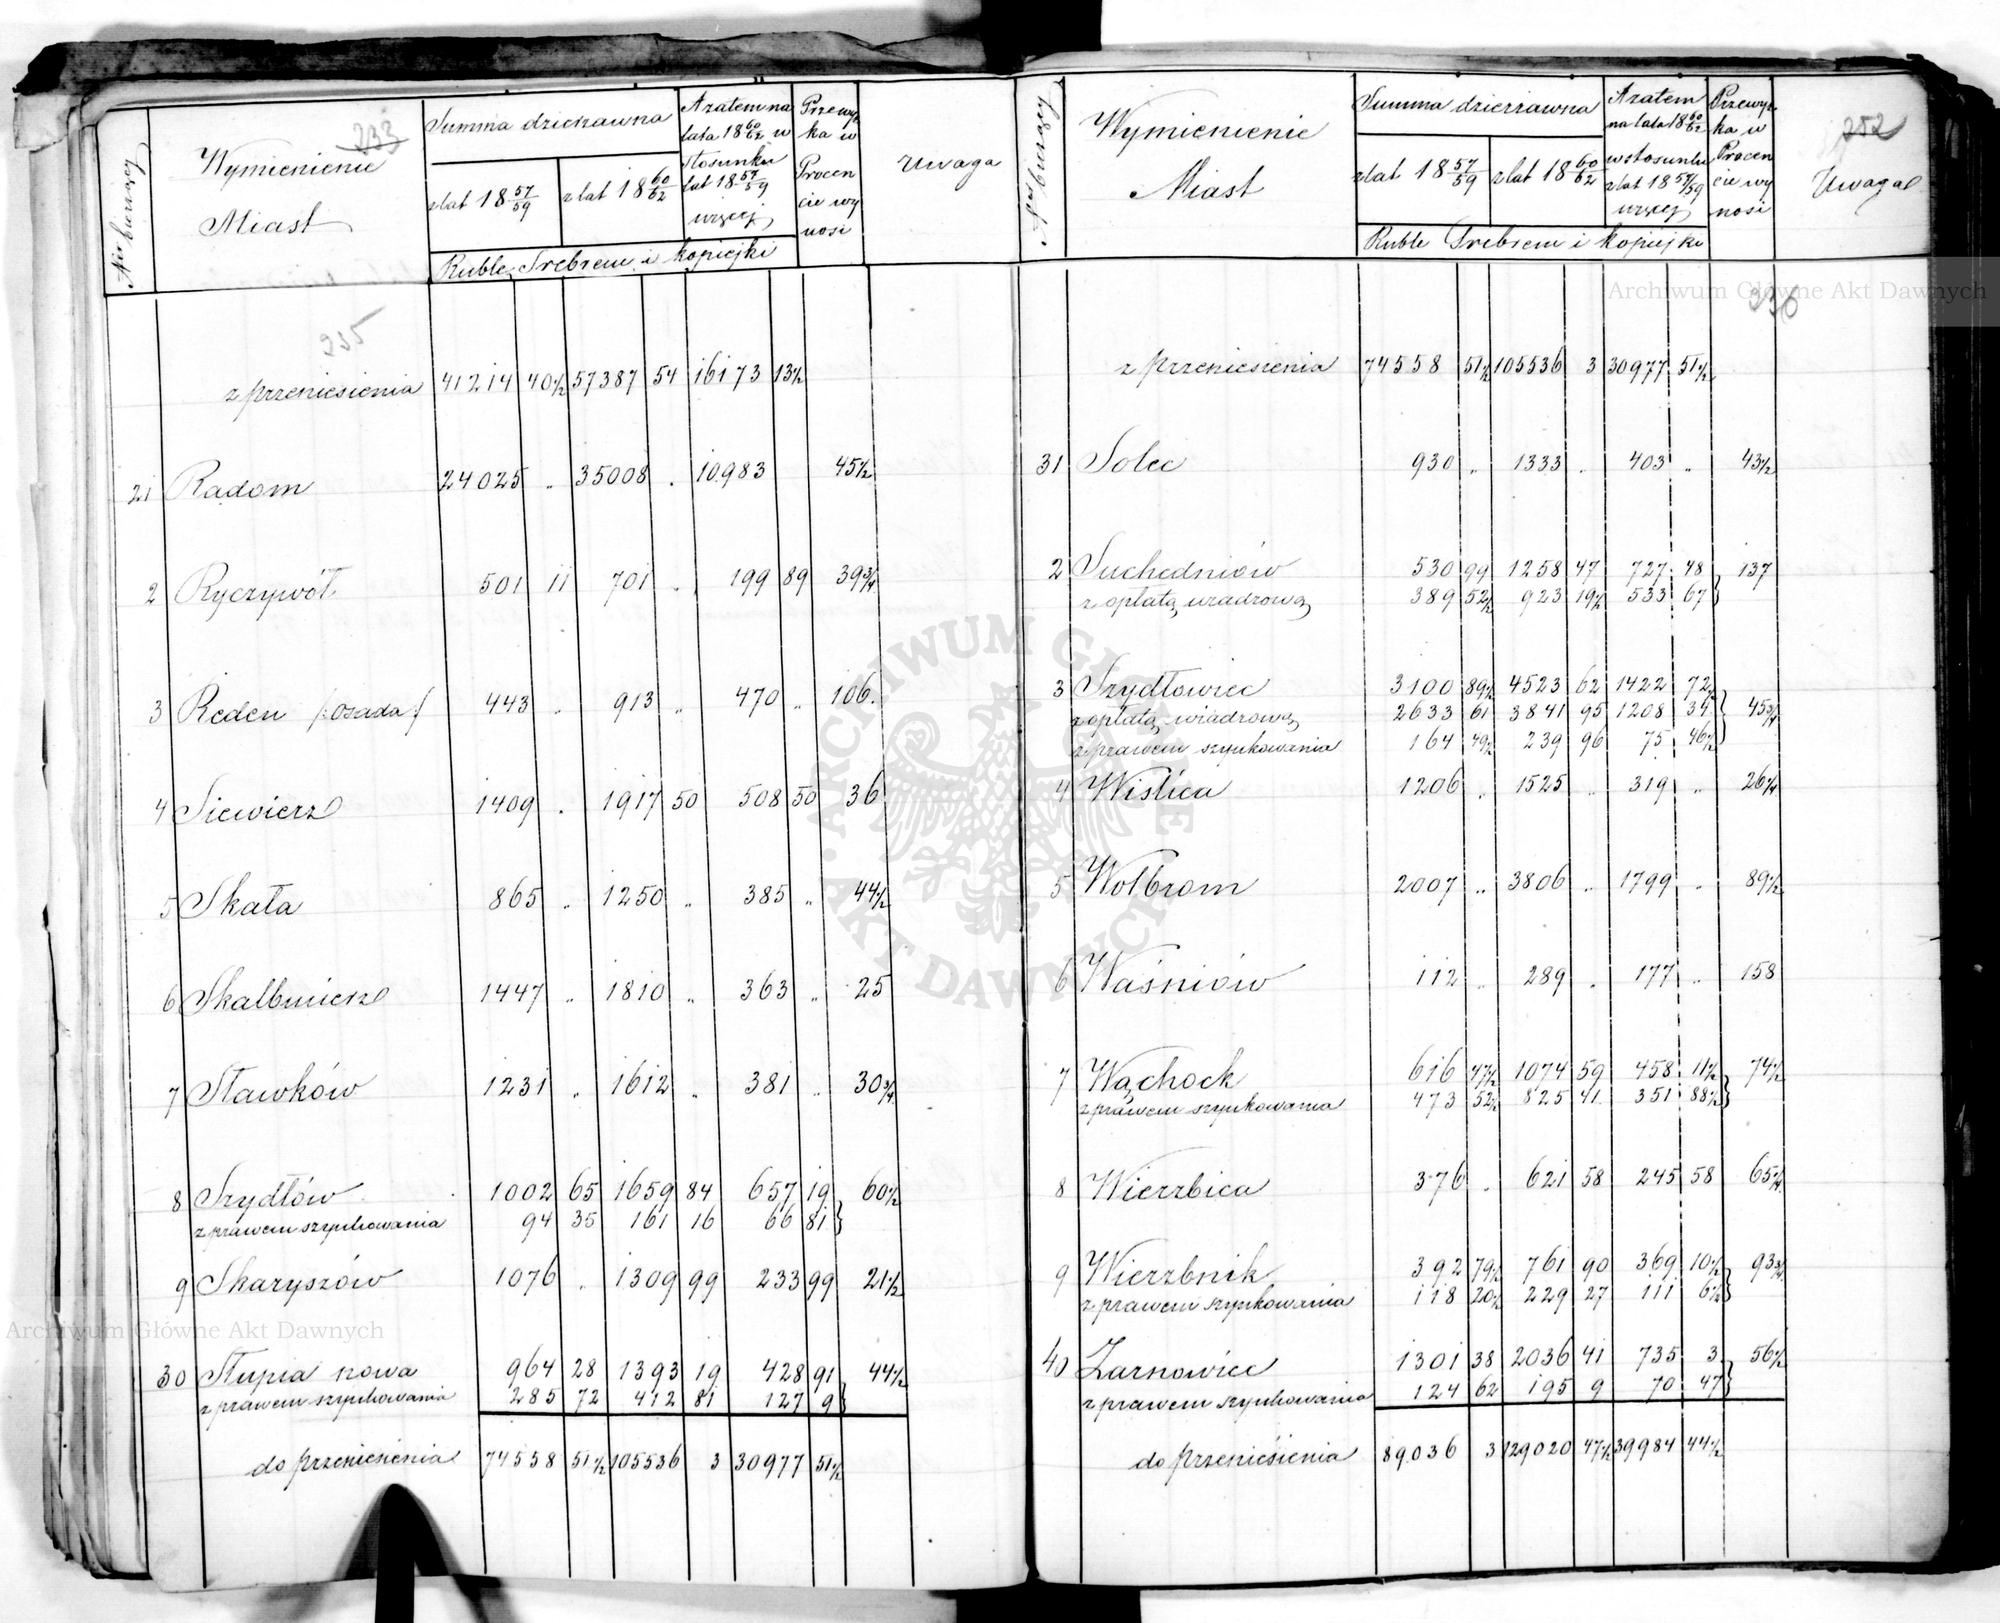 Nr bieżący
Wymienienie
Miast
233
Summa dzierżawna
z lat 18 57/59
z lat 18 60/62
A zatem na
lata 18 60/62 w
stosunku
lat 18 57/59
więcej
Ruble Srebrem i kopiejki
Przewyż
ka w
Procen
cie wy
nosi
Uwaga
235
z przeniesienia 41214 40½ 57387 54 16173 13½
21 Radom 24025 „ 35008 „ 10983 45½
2 Ryczywół 501 11 701 „ 199 89 39¾
3 Reden /:osada:/ 443 „ 913 „ 470 „ 106.
4 Siewierz 1409 „ 1917 50 508 50 36
5 Skała 865 „ 1250 „ 385 „ 44½
6 Skalbmierz 1447 „ 1810 „ 363 „ 25
7 Sławków 1231 „ 1612 „ 381 „ 30¾
8 Szydłów 1002 65 1659 84 657 19 60½
z prawem szynkowania 94 35 161 16 66 81
9 Skaryszów 1076 „ 1309 99 233 99 21½
30 Słupia nowa 964 28 1393 19 428 91 44½
z prawem szynkowania 285 72 412 81 127 9
do przeniesienia 74558 51½ 105536 3 30977 51½
Nr bieżący
Wymienienie
Miast
Summa dzierżawna
z lat 18 57/59
z lat 18 60/62
A zatem
na lata 18 60/62
w stosunku
z lat 18 57/59
więcej
Ruble Srebrem i kopiejki
Przewyż
ka w
Procen
cie wy
nosi
252
Uwaga
336
z przeniesienia 74558 51½ 105536 3 30977 51½
31 Solec 930 „ 1333 „ 403 „ 43½
2 Suchedniów 530 99 1258 47 727 48 137
z opłatą wiadrową 389 52½ 923 19½ 533 67
3 Szydłowiec 3100 89½ 4523 62 1422 72½ 45¾
z opłatą wiadrową 2633 61 3841 95 1208 34
z prawem szynkowania 164 49½ 239 96 75 46½
4 Wiślica 1206 „ 1525 „ 319 „ 26¼
5 Wolbrom 2007 „ 3806 „ 1799 „ 89½
6 Waśniów 112 „ 289 „ 177 „ 158
7 Wąchock 616 47½ 1074 59 458 11½ 74½
z prawem szynkowania 473 52½ 825 41 351 88½
8 Wierzbica 376 „ 621 58 245 58 65¼
9 Wierzbnik 392 79½ 761 90 369 10½ 93¾
z prawem szynkowania 118 20½ 229 27 111 6½
40 Żarnowiec 1301 38 2036 41 735 3 56½
z prawem szynkowania 124 62 195 9 70 47
do przeniesienia 89036 3 129020 47½ 39984 44½
Archiwum Główne Akt Dawnych
Archiwum Główne Akt Dawnych
ARCHIWUM GŁÓWNE AKT DAWNYCH